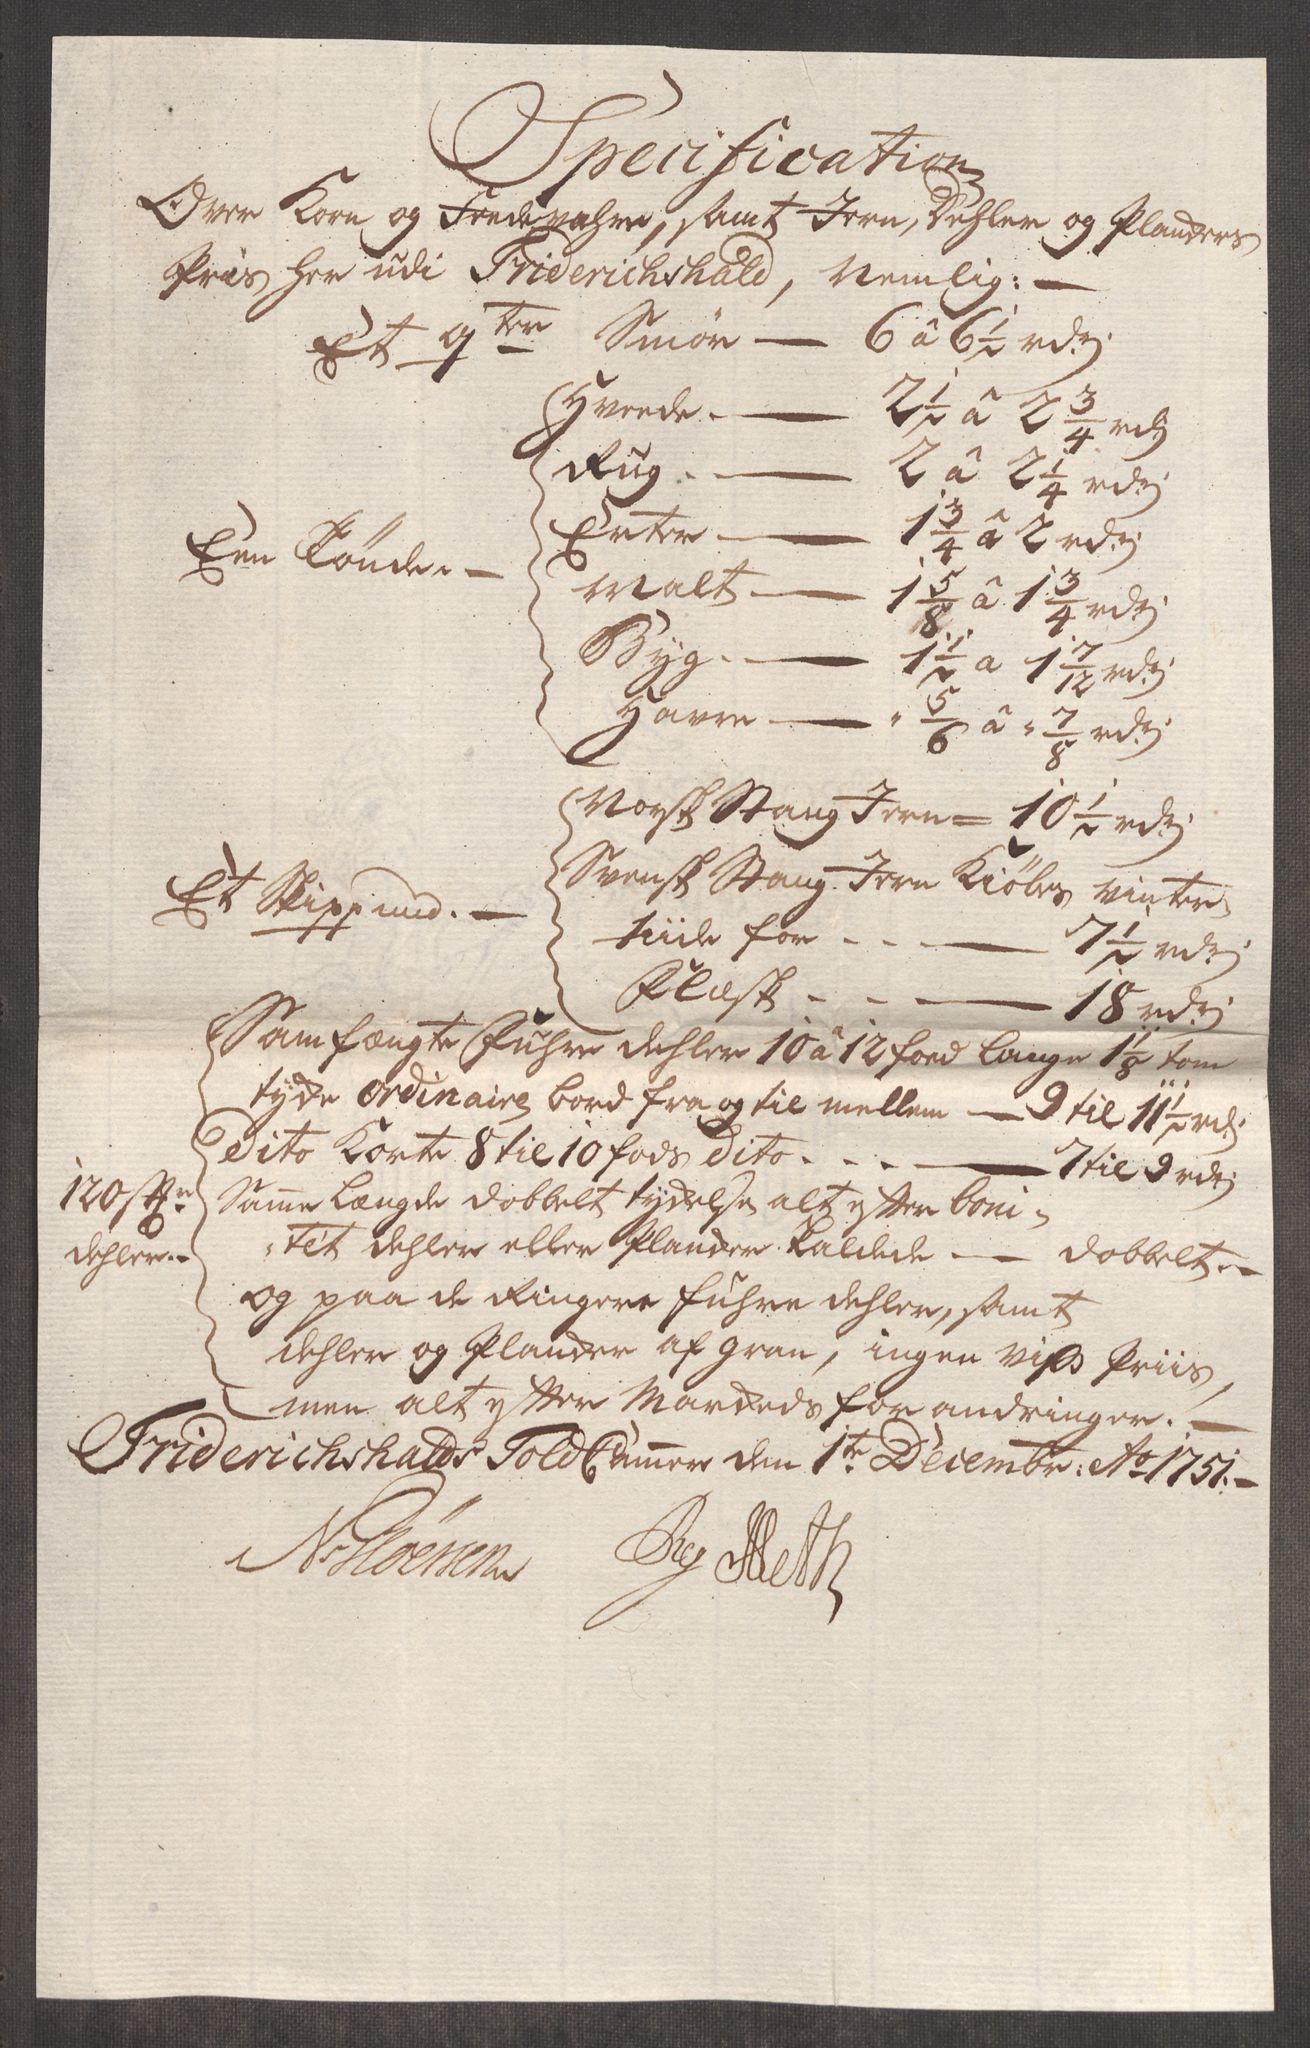 Specification
Over Korn og Fædevahre, samt Jern, Dehler og Planckers
Priis her udi Friderichshald, Nemlig: —
Et qter Smör — 6 â 6 1/2 rdr
Een Tönde. —
Hvede. — 2 1/2 â 2 3/4 rdr
Rug. — 2 â 2 1/4 rdr
Erter — 1 3/4 â 2 rdr
Malt — 1 5/8 â 1 3/4 rdr
Byg. — 1 1/2 a 1 7/12 rdr
Havre — " 5/6 â " 7/8 rdr
Et Skippund. —
Norsk Stang Jern = 10 1/2 rdr
Svensk Stang Jern Kiöbes vinter
tiide for - - — 7 1/2 rdr
Flæsk - - — 18 rdr
120 stkr
dehler. -
Samfængte Fuhre dehler 10 â 12 foed lange 1 1/8 tom
tycke ordinaire bord fra og til mellem — 9 til 11 1/2 rdr
dito Korte 8 til 10 fods dito. - - — 7 til 9 rdr
Samme Længde dobbelt tyckelse alt efter boni-
-tét dehler eller Plancker kaldede — dobbelt. -
og paa de Ringere fuhre dehler, samt
dehler og Plancker af gran, ingen viss Priis,
men alt efter Marckeds forandringer. —
Friderichshalds Told Cammer den 1te Decembr: Ao 1751. -